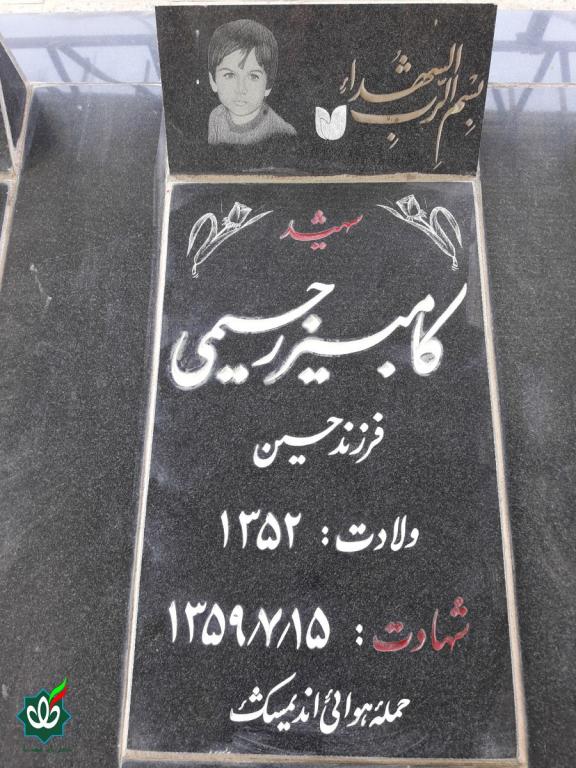 بسم الرب الشهداء
شهید
کامبیز رحیمی
فرزند حسین
ولادت: ۱۳۵۲
شهادت: ۱۳۵۹/۷/۱۵
حمله هوائی اندیمشک